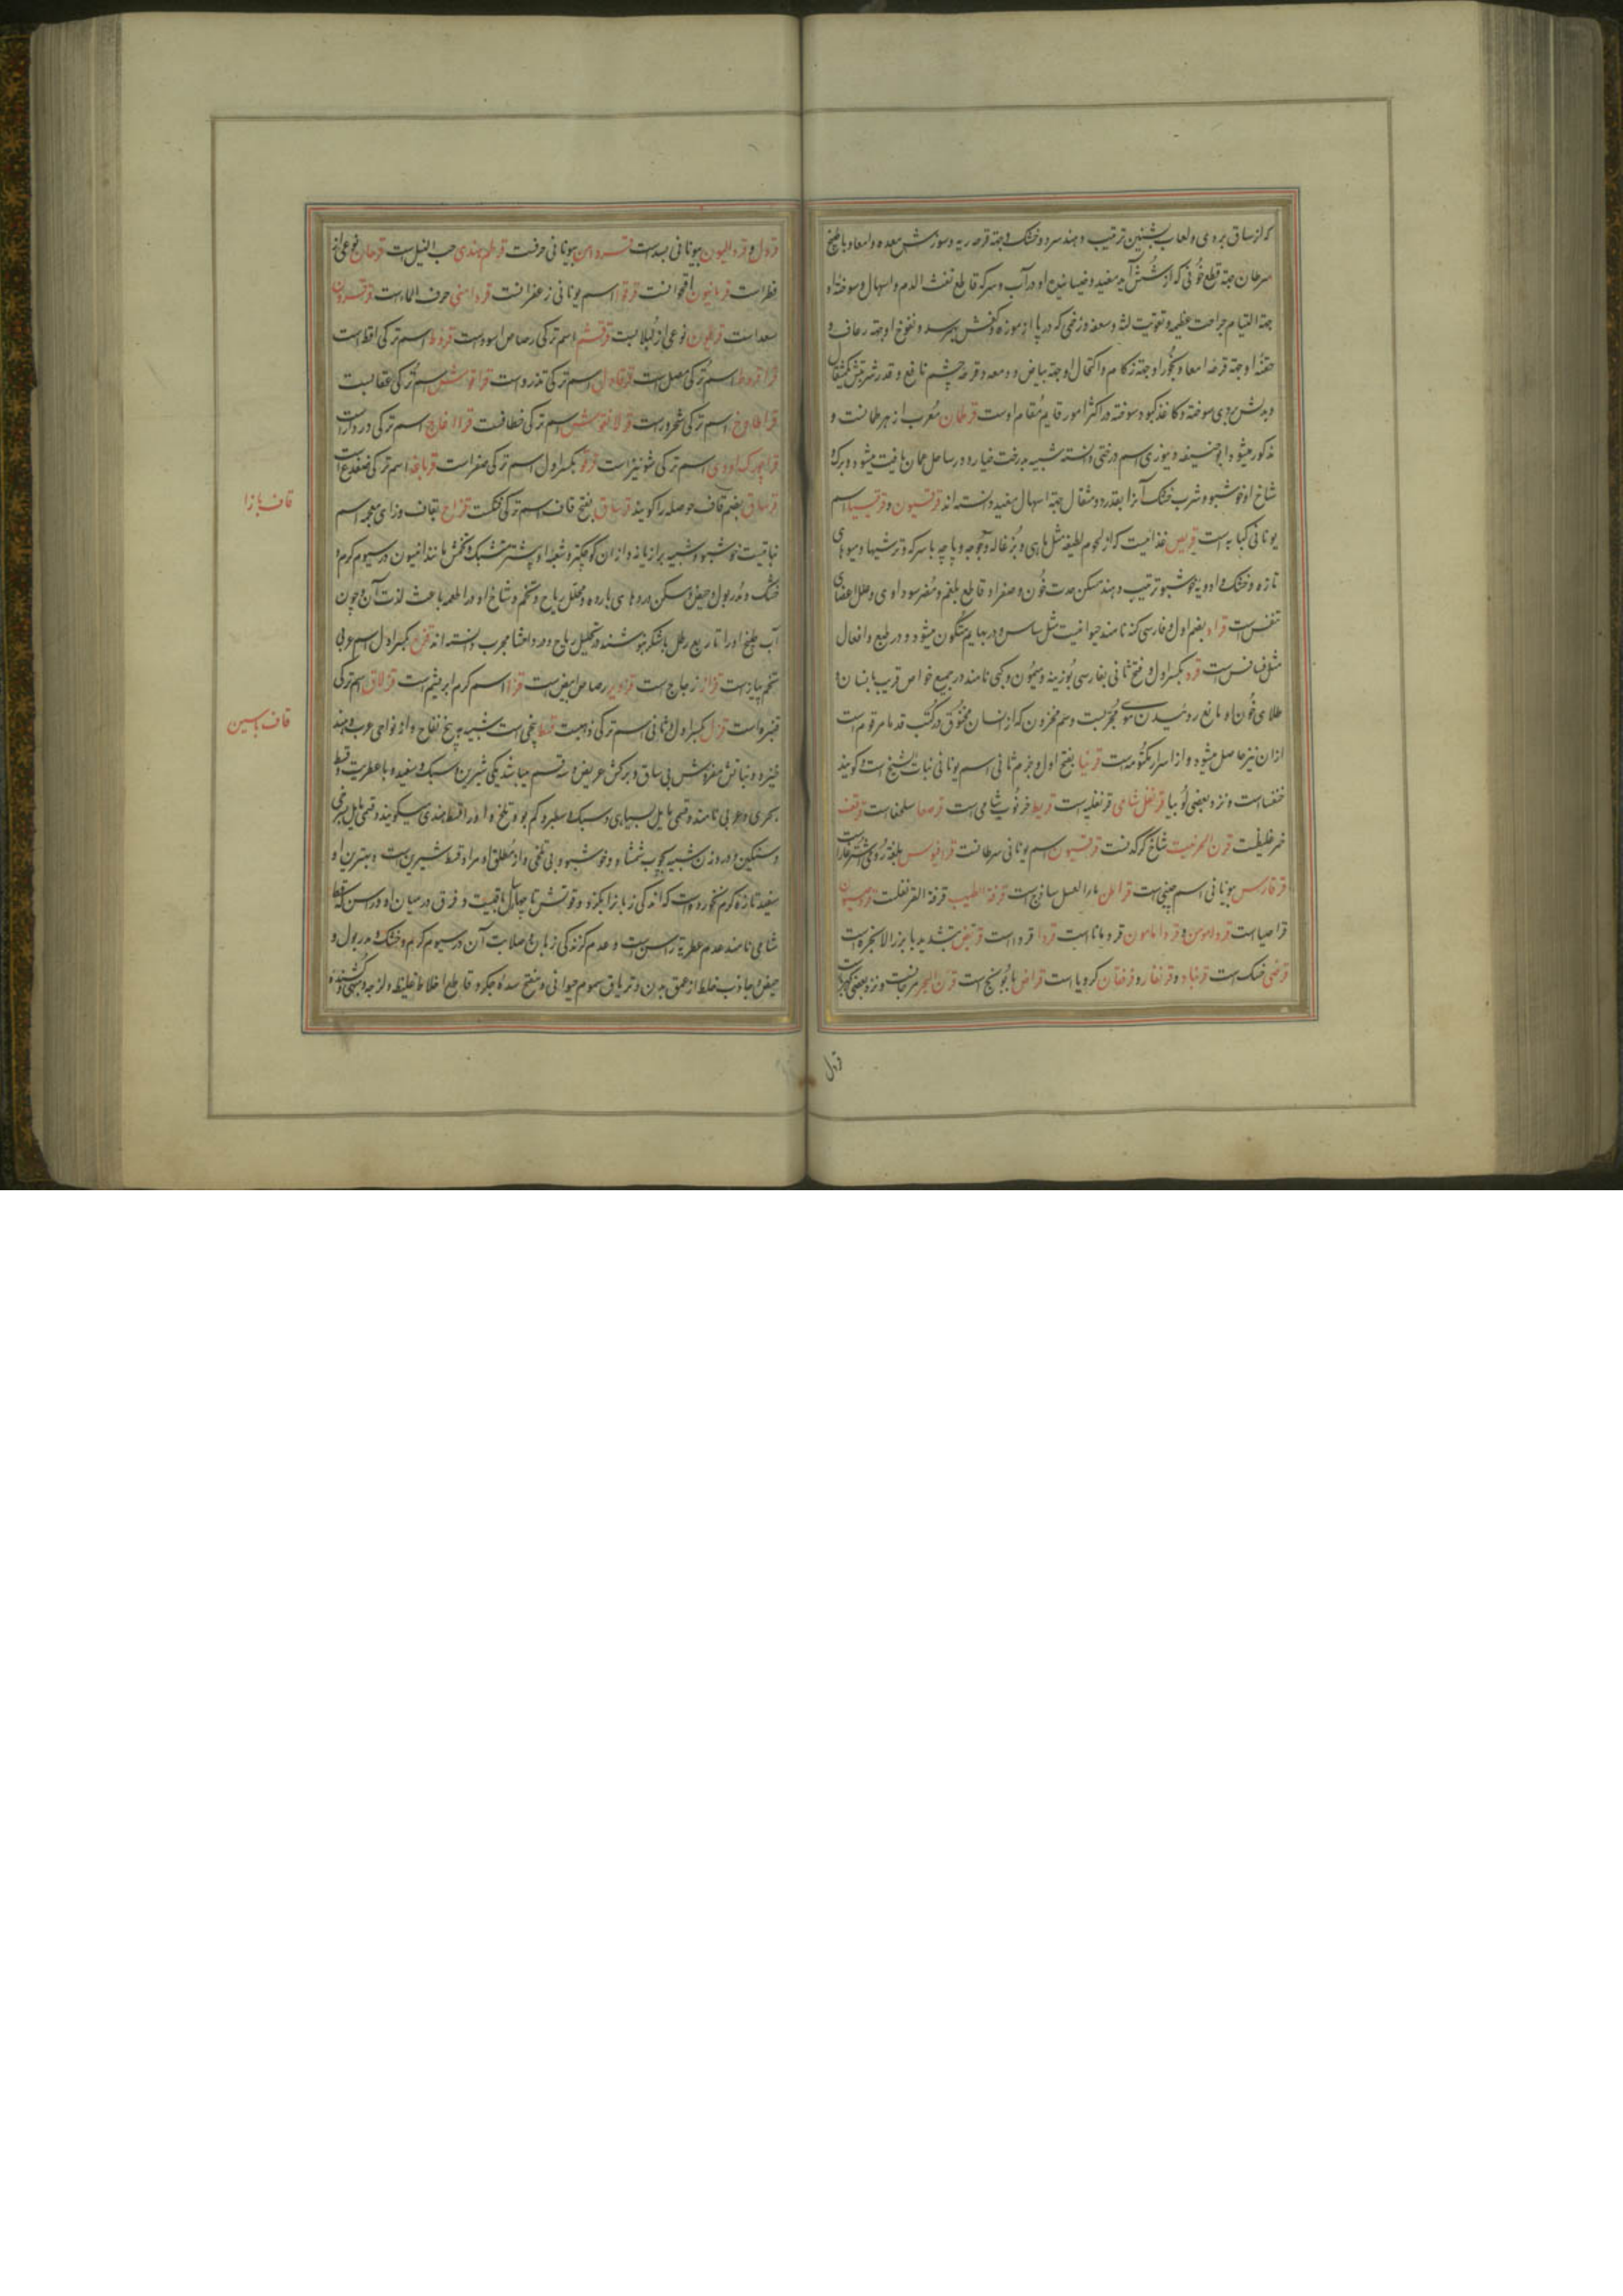 که از ساق بروی و لعاب بشنین ترتیب دهند سرد و خشک و جهة قرحه ریه و سوزش معده و امعا و با طبخ
سرطان جهة قطع خونی که از شش آید مفید و ضمادش او در آب و سرکه قاطع نفث الدم و اسهال و سوخته او
جهة التیام جراحت عظیمه و تقویت لثه و سعفه و زخمی که در پا از موزه و کفش بهم رسد و نفوخ او جهة رعاف و
حقنه او جهة قرحه امعا و بخور او جهة زکام و اکتحال او جهة بیاض و دمعه و قرحه چشم نافع و قدر شربتش یکمثقال
و بدلش بردی سوخته و کاغذ کبود سوخته در اکثر امور قایم مقام اوست قرطمان معرب از هرطمانست و
مذکور میشود ابوحنیفه دینوری اسم درختی دانسته شبیه بدرخت خیار و در ساحل عمان یافت میشود و برک و
شاخ او خوشبو و شرب خشک آنرا بقدر دو مثقال جهة اسهال مفید دانسته‌اند قرقسیون و قرقیسیا اسم
یونانی کبابه است قریص غذائیست که از لحوم لطیفه مثل ماهی و بزغاله و جوجه و پاچه با سرکه و ترشیها و میوهای
تازه و خشک و ادویه خوشبو ترتیب دهند مسکن حدت خون و صفرا و قاطع بلغم و مضر سوداوی و علل اعضای
تنفس است قراد بضم اول و فارسی کنه نامند حیوانیست مثل ساس و در بهایم متکون میشود و در طبع و افعال
مثل فسافس است قرد بکسر اول و فتح ثانی بفارسی بوزینه و میمون و کپی نامند در جمیع خواص قریب بانسان و
طلای خون او مانع روئیدن موی مجربست و سم مخزون که از انسان مخنوق در کتب قدما مرقوم است
ازان نیز حاصل میشود و از اسرار مکتومه است قرنیا بفتح اول و جزم ثانی اسم یونانی نبات الشیخ است و کویند
خنفسا است و نزد بعضی لوبیا قرنفل شامی قرنفلیه است قریط خرنوب شامی است قرصعا سلحفا است قرقف
خمر غلیظست قرن البحر نیست شاخ کرکدنست قرقسیون اسم یونانی سرطانست قرافیوس بلغة رومی
قرقارس بیونانی اسم چینی است قراطن ماء العسل ساذج است قرفة الطیب قرفة القرنفلست
قراصیا است قرداموس و قرداماون قردمانا است قردا قرد است قریض بتشدید با بزر الانجره است
قرضی خسک است قرنباد و قرنفار و قرفان کرویا است قراص بابونج است قرن البحر مرجانست و نزد بعضی کهربا
قردل
قردل و قردالیون بیونانی بسد است قسرودامن بیونانی حرفست قرطم هندی حب النیل است قرحان نوعی از
فطر است قربانیون اقحوانست قرقوا اسم یونانی زعفرانست قردامنی حرف الماء است
سعد است قراطیون نوعی از لبلابست قرقشم اسم ترکی رصاص اسود است قروط اسم ترکی اقط است
قراقروط اسم ترکی مصل است قرقاول اسم ترکی تذرو است قراقوش اسم ترکی عقابست
قراطاوخ اسم ترکی شحرور است قرلانقوش اسم ترکی خطافست قرااغاج اسم ترکی دردار است
قراچورک اودی اسم ترکی شونیز است قرقو بکسر اول اسم ترکی صقر است قرباغه اسم ترکی ضفدع است
قرساق بضم قاف حوصله را کویند قرساق بفتح قاف اسم ترکی فنکست قزاح بقاف و زای معجمه اسم
نباتیست خوشبو و شبیه برازیانه و ازان کوچکتر و شعبه او بیشتر و مشبک و تخمش مانند انیسون در سیوم کرم و
خشک و مدر بول و حیض و مسکن دردهای بارده و محلل ریاح و تخم و شاخ او در اطعمه باعث لذت آن و چون
آب طبخ او را تا ربع رطل با شکر بنوشند در تحلیل ریاح و درد احشا مجرب دانسته‌اند قزح بکسر اول اسم عربی
تخم پیاز است قزاز زجاج است قزدیر رصاص ابیض است قزا اسم کرم ابریشم است قزلاق اسم ترکی
قنبره است قزل بکسر اول و ثانی اسم ترکی ذهبست قسط بیخی است شبیه به بیخ لفاح و از نواحی عرب و هند
خیزد و نباتش مفروش بی ساق و برکش عریض و سه قسم میباشد یکی شیرین و سبک و سفید و با عطریت و قسط
بحری و عربی نامند و قسمی مایل بسیاهی و سبک و سطبر و کم بو و تلخ و او را قسط هندی میکویند و قسمی مایل بسرخی
و سنکین و در وزن شبیه بچوب شمشاد و خوشبو و بی تلخی و از مطلق او مراد قسط شیرین است و بهترین او
سفید تازه کرم نخورده است که اندکی زبان را بکزد و قوتش تا چهار سال باقیست و فرق در میان او و راسن که قسط
شامی نامند عدم عطریة راسن است و عدم کزندکی زبان و صلابت آن در سیوم کرم و خشک و مدر بول و
حیض و جاذب خلط از عمق بدن و تریاق سموم حیوانی و مفتح سده جکر و قاطع اخلاط غلیظ و لزجه و مشهی و کشنده
قاف با زا
قاف با سین